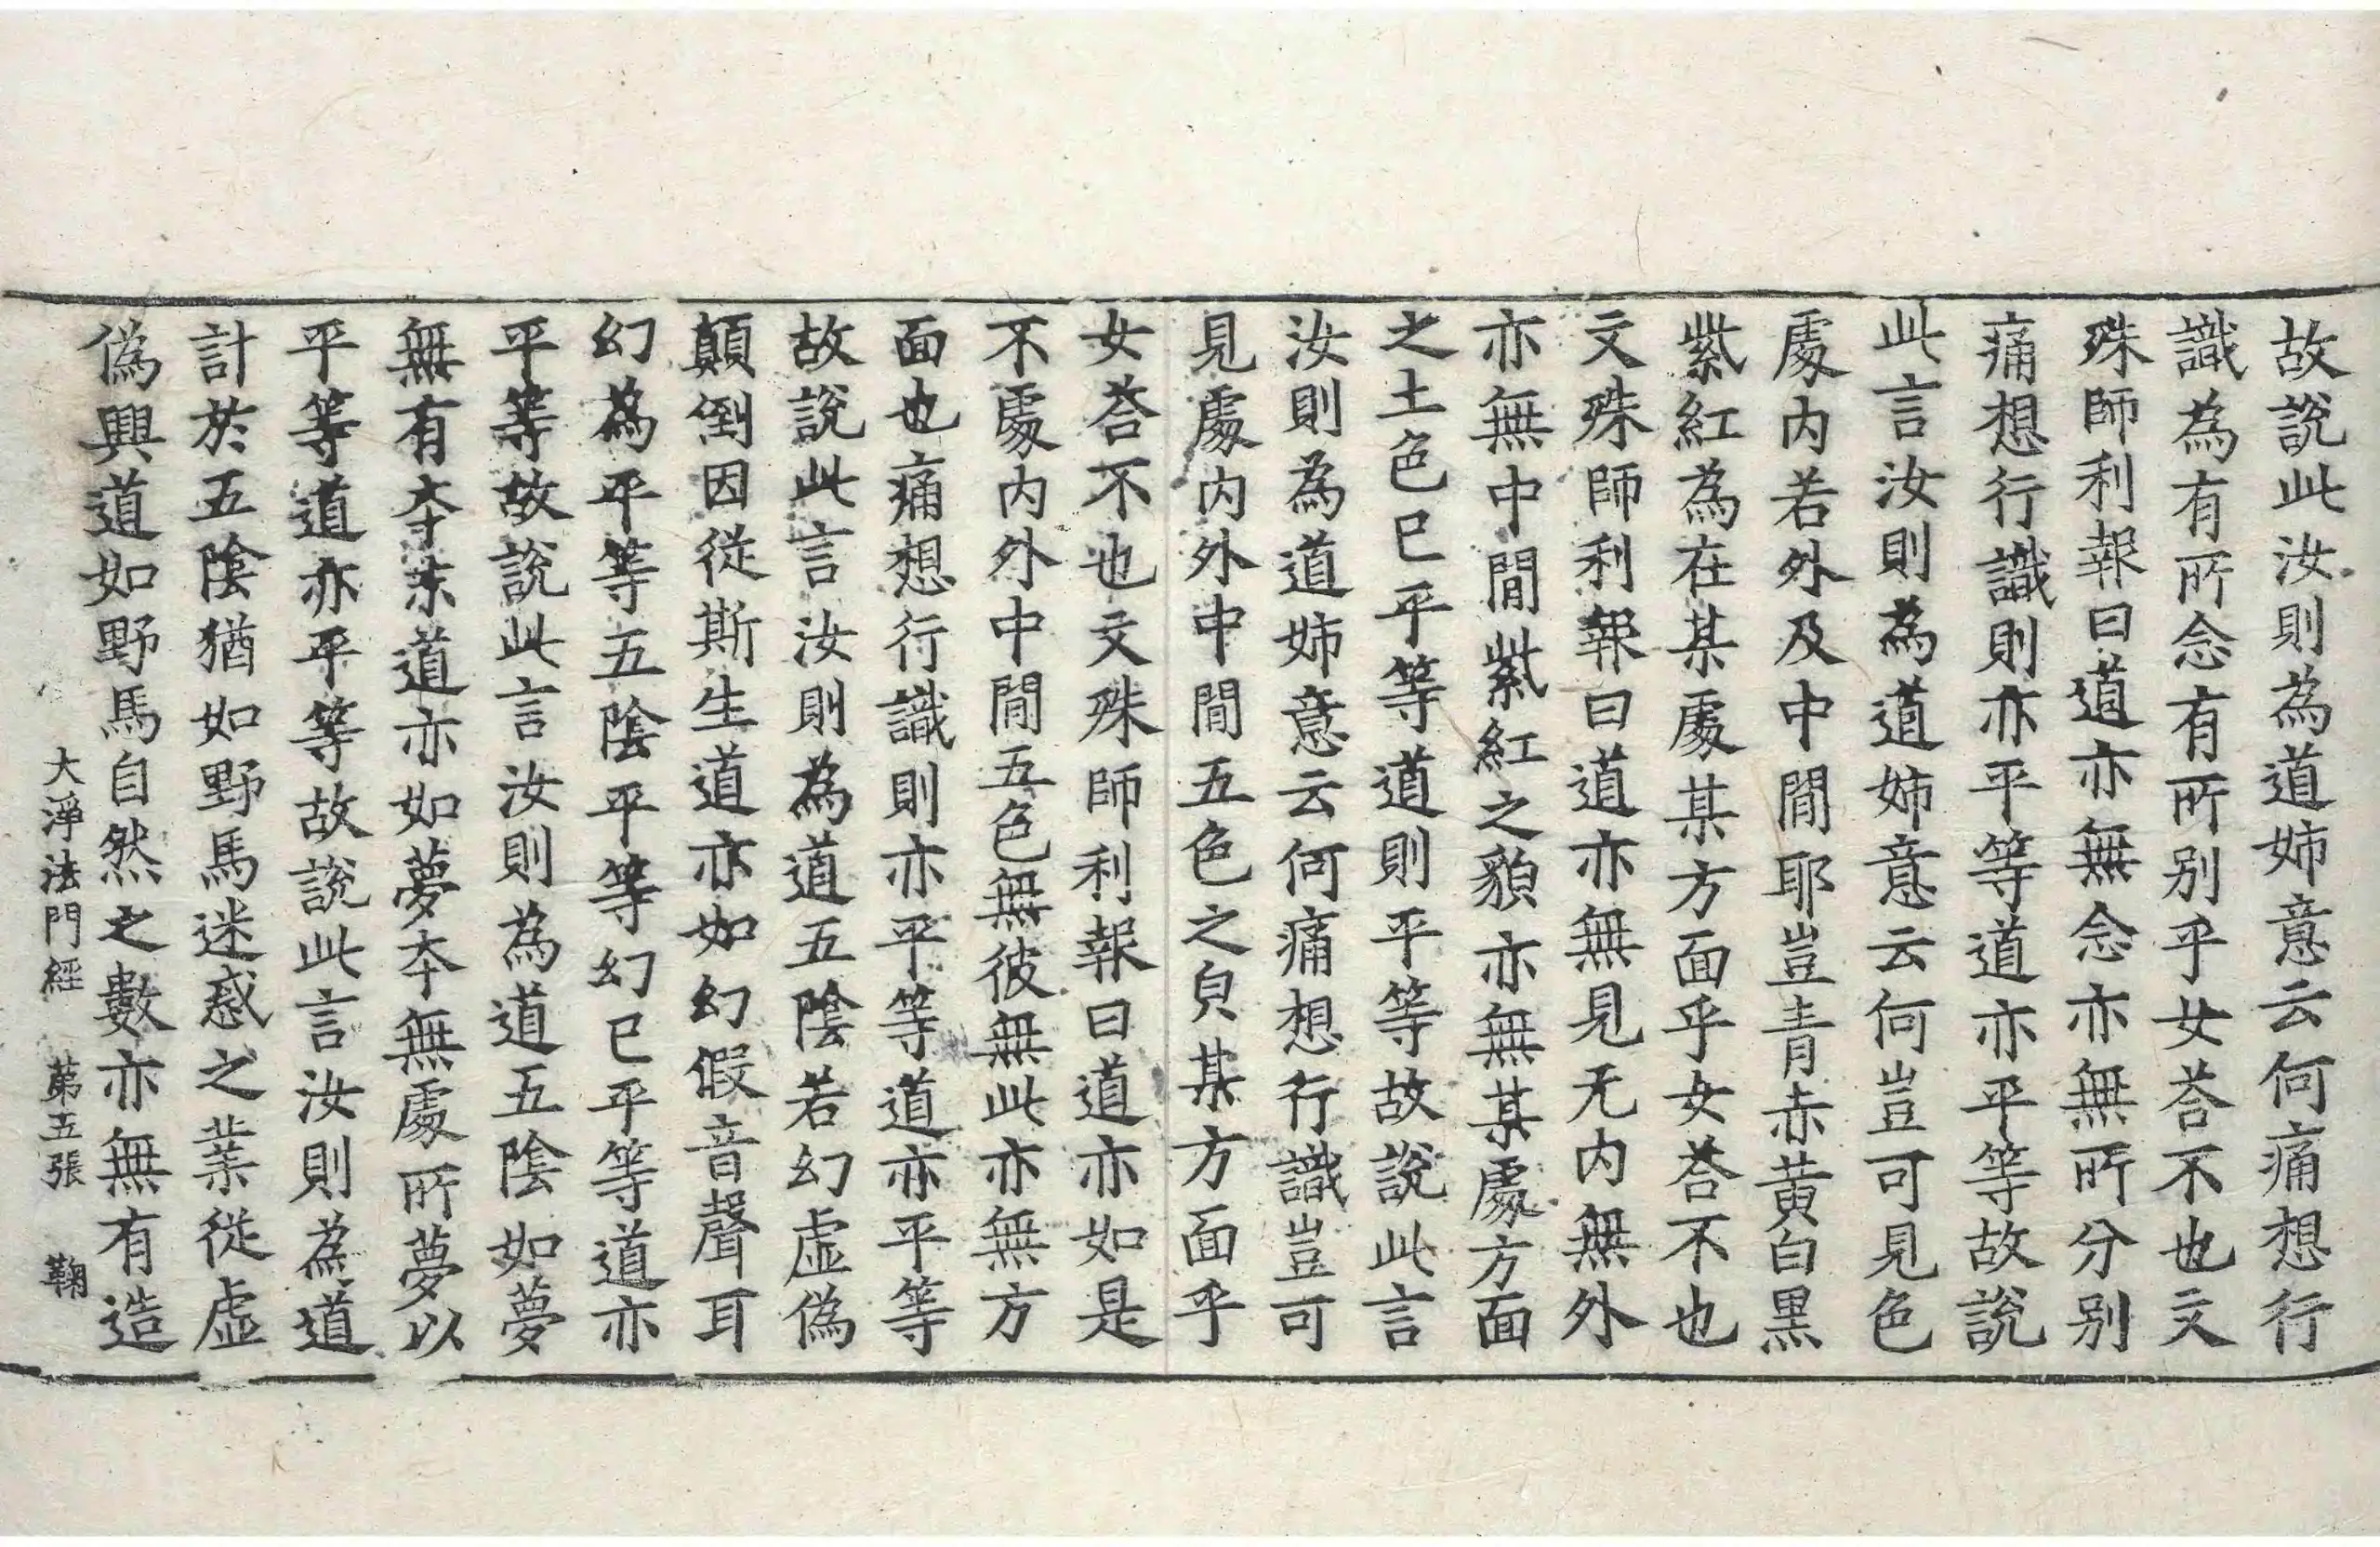 故說此汝則為道姉意云何痛想行
識為有所念有所別乎女荅不也文
殊師利報曰道亦無念亦無所分别
痛想行識則亦平等道亦平等故說
此言汝則為道姉意云何豈可見色
處内若外及中間耶豈青赤黄白黑
紫紅為在某處某方面乎女荅不也
文殊師利報曰道亦無見无内無外
亦無中間紫紅之貌亦無某處方面
之土色已平等道則平等故說此言
汝則為道姉意云何痛想行識豈可
見處内外中間五色之皃某方面乎
女荅不也文殊師利報曰道亦如是
不處内外中間五色無彼無此亦無方
面也痛想行識則亦平等道亦平等
故說此言汝則為道五陰若幻虚偽
顛倒因從斯生道亦如幻假音聲耳
幻為平等五陰平等幻已平等道亦
平等故說此言汝則為道五陰如夢
無有夲末道亦如夢夲無處所夢以
平等道亦平等故說此言汝則為道
計於五陰猶如野馬迷惑之業從虚
偽興道如野馬自然之數亦無有造
大淨法門經 第五張 鞠